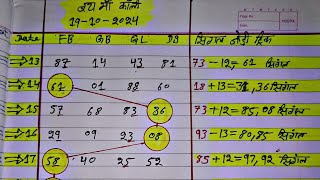 जय माँ काली
19-10-2024
Date FB GB GL DS सिंगल जोड़ी ट्रिक
13 87 14 43 81 73-12=61 सिंगल
14 61 01 88 60 18+13=31, 36 सिंगल
15 57 68 83 36 73+12=85, 08 सिंगल
16 29 09 23 08 93-13=80, 85 सिंगल
17 58 40 25 52 85+12=97, 92 सिंगल